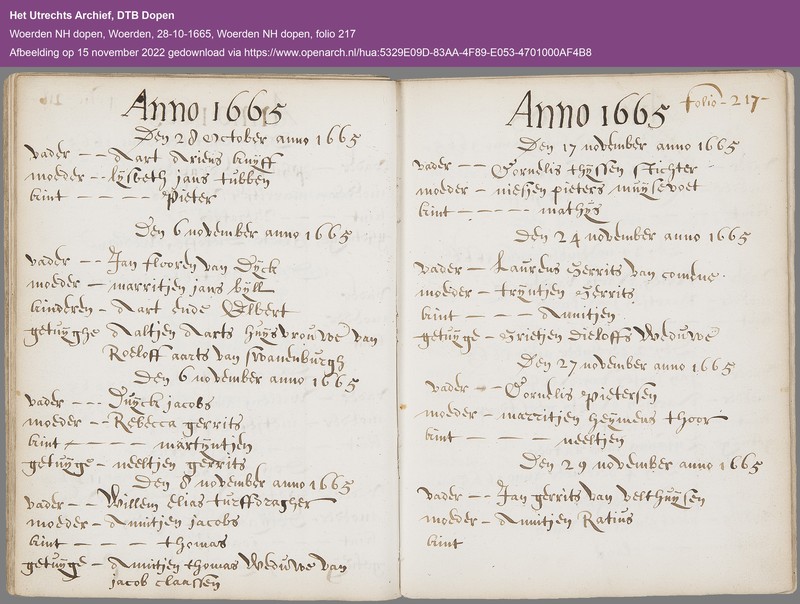 Het Utrechts Archief, DTB Dopen
Woerden NH dopen, Woerden, 28-10-1665, Woerden NH dopen, folio 217
Afbeelding op 15 november 2022 gedownload via https://www.openarch.nl/hua:5329E09D-83AA-4F89-E053-4701000AF4B8
Anno 1665
Den 28 October anno 1665
vader -- Aart Ariens kuyff
moeder -- lysbeth jans tubben
kint - - - - Pieter
Den 6 november anno 1665
vader -- Jan flooren van Dyck
moeder - marritjen jans byll
kinderen - Aart ende Elbert
getuyghe Aaltjen Aarts huysvrouwe van
Roeloff aarts van swanenburgh
Den 6 november anno 1665
vader --- jacobs
moeder -- Rebecca gerrits
kint - - - - martyntjen
getuyge - neeltjen gerrits
Den 8 november anno 1665
vader -- Willem elias turffdragher
moeder - Annitjen jacobs
kint - - - - thomas
getuyge - Annitjen thomas Weduwe van
jacob claassen
folio - 217 -
Anno 1665
Den 17 november anno 1665
vader -- Cornelis thyssen Stichter
moeder - niesjen pieters muysevoet
kint - - - - mathys
Den 24 november anno 1665
vader - Laurens Gerrits van
moeder - tryntjen Gerrits
kint - - - Annitjen
getuyge - Grietjen dieloffs Weduwe
Den 27 november anno 1665
vader -- Cornelis Pietersen
moeder - marritjen heymens thoor
kint - - - - neeltjen
Den 29 november anno 1665
vader -- Jan gerrits van velthuysen
moeder - Annitjen Ratius
kint